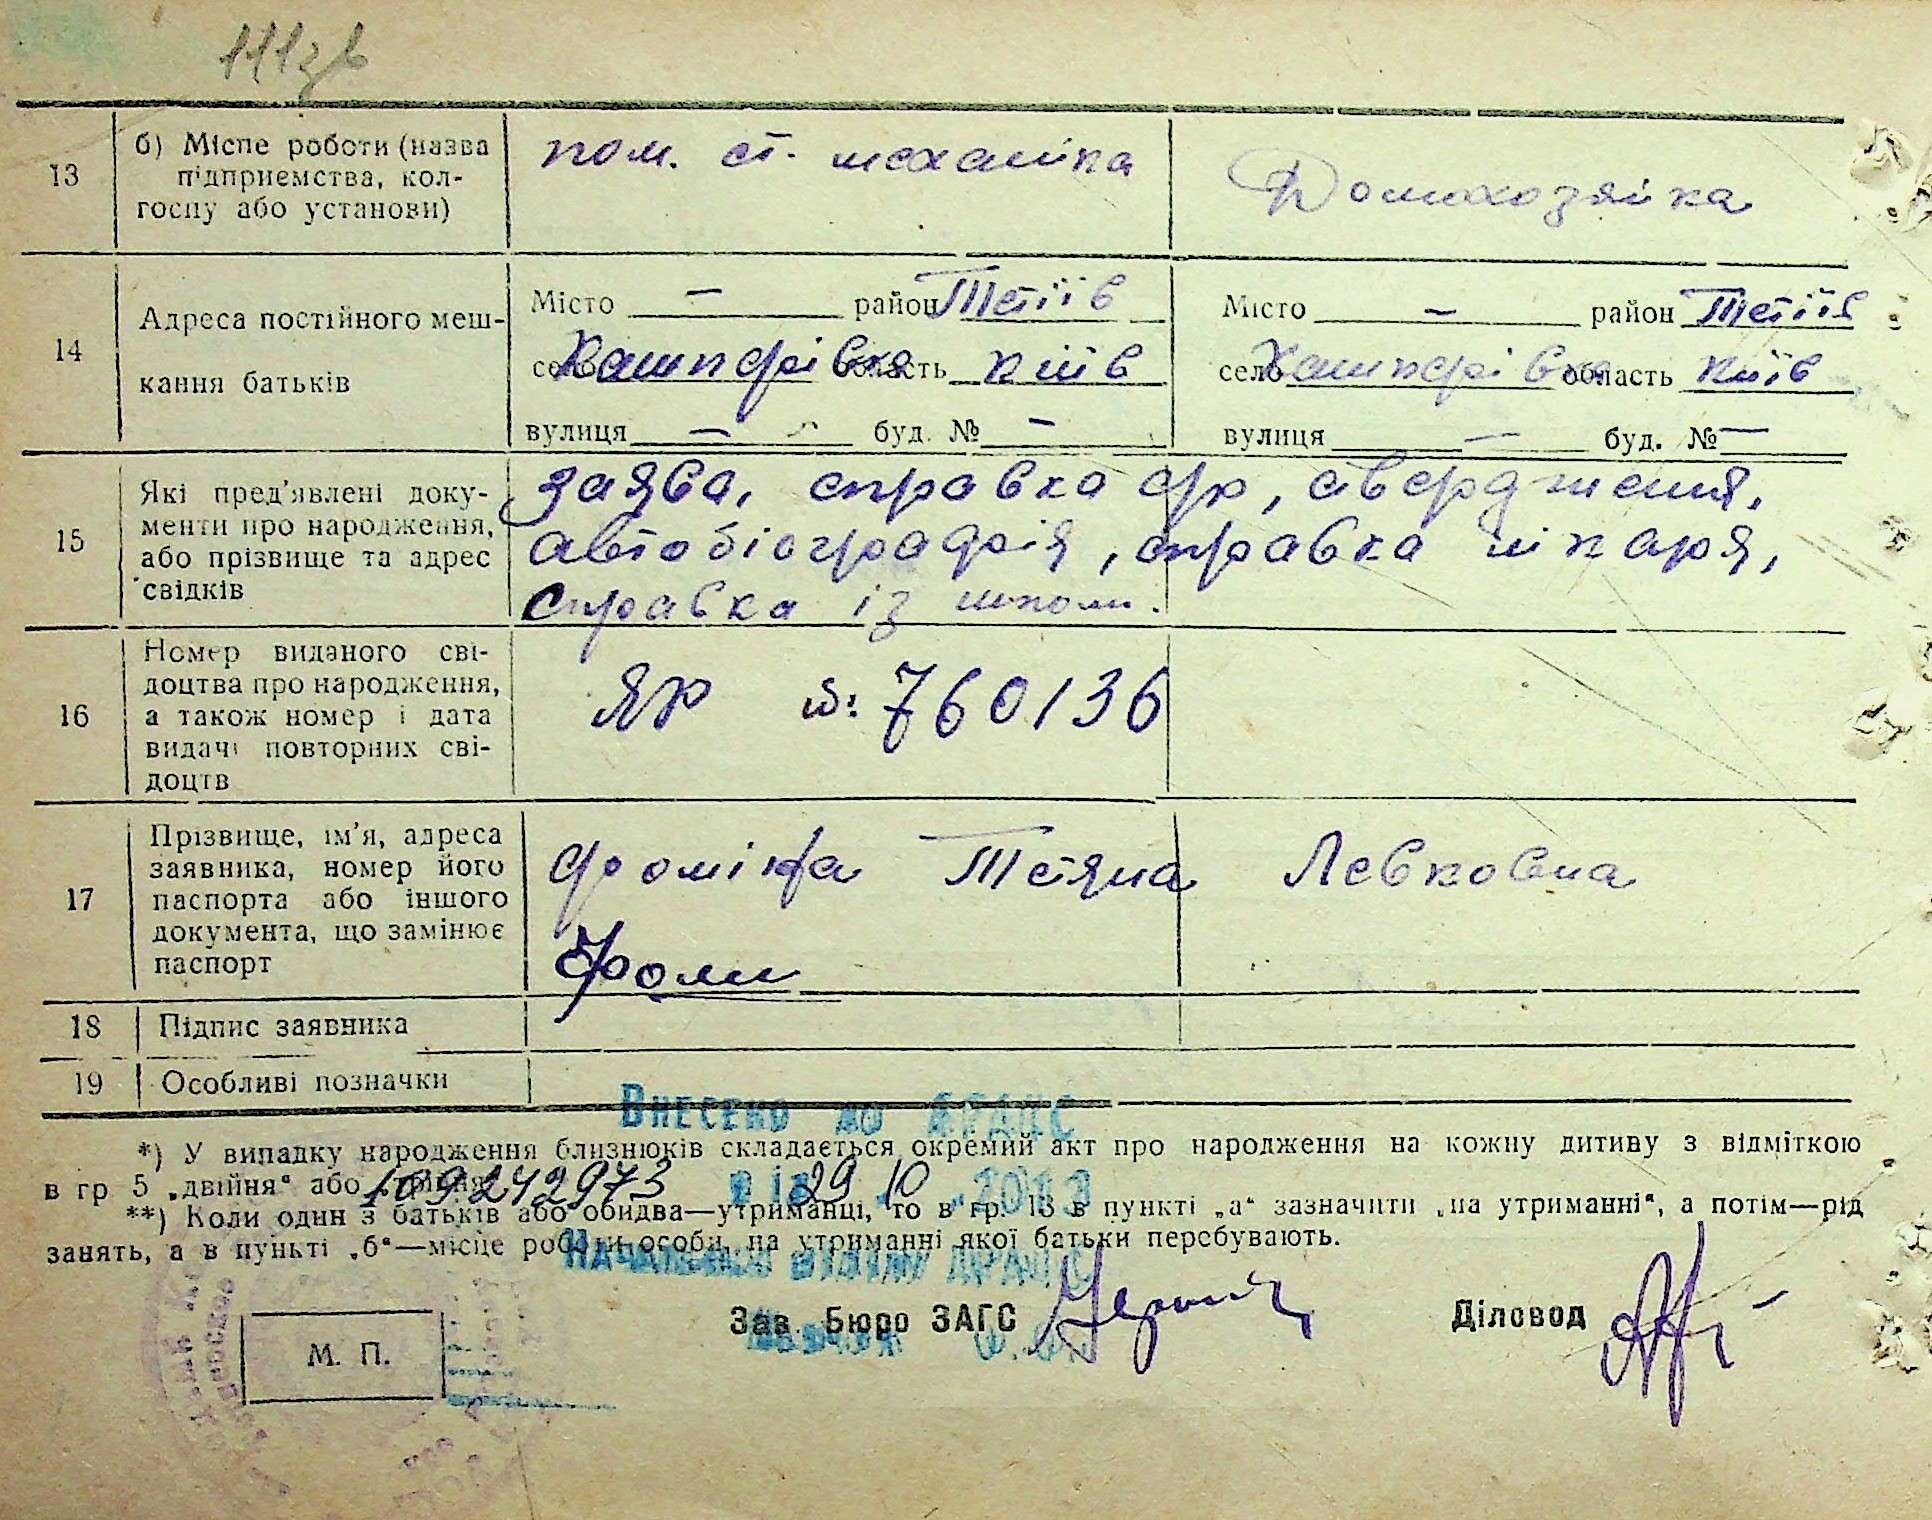 111зв
13
б) Місце роботи (назва
підприємства, кол-
госпу або установи)
пом. ст. механіка
Домохозяйка
14
Адреса постійного меш-
кання батьків
Місто — район Тетіїв
село Кашперівка область Київ
вулиця — буд. № —
Місто — район Тетіїв
село Кашперівка область Київ
вулиця — буд. № —
15
Які пред'явлені доку-
менти про народження,
або прізвище та адрес
свідків
заява, справка ф-р, свердження,
автобіографія, справка лікаря,
справка із школи.
16
Номер виданого сві-
доцтва про народження,
а також номер і дата
видачі повторних сві-
доцтв
ЯР №: 760136
17
Прізвище, ім'я, адреса
заявника, номер його
паспорта або іншого
документа, що замінює
паспорт
Фоміна Тетяна Левковна
Фоми
18
Підпис заявника
19
Особливі позначки
Внесено до ДРАЦС
*) У випадку народження близнюків складається окремий акт про народження на кожну дитину з відміткою
в гр 5 „двійня“ або „трійня“
109242973 від 29.10.2013
**) Коли один з батьків або обидва—утриманці, то в гр. 13 в пункті „а“ зазначити „на утриманні“, а потім—рід
занять, а в пункті „б“—місце роботи особи, на утриманні якої батьки перебувають.
Начальник відділу ДРАЦС
Зав. Бюро ЗАГС
Діловод
М. П.